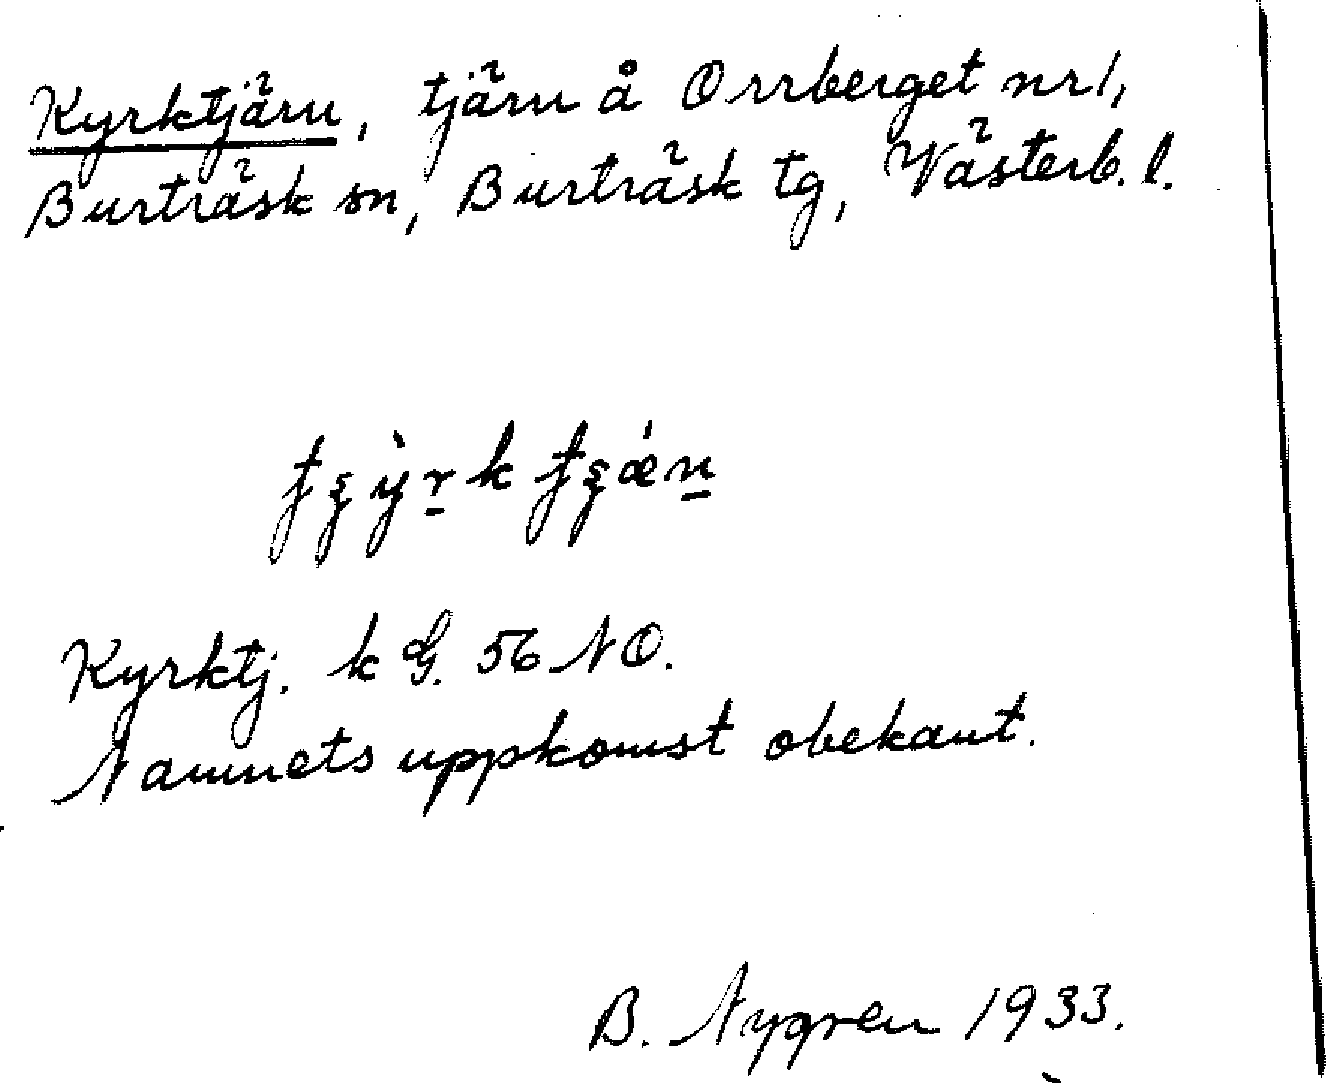 Kyrktjärn, tjärn å Orrberget nr 1,
Burträsk sn, Burträsk tg, Västerb. l.
Kyrktj. k G. 56 NO.
Namnets uppkomst obekant.
B. Nygren 1933.